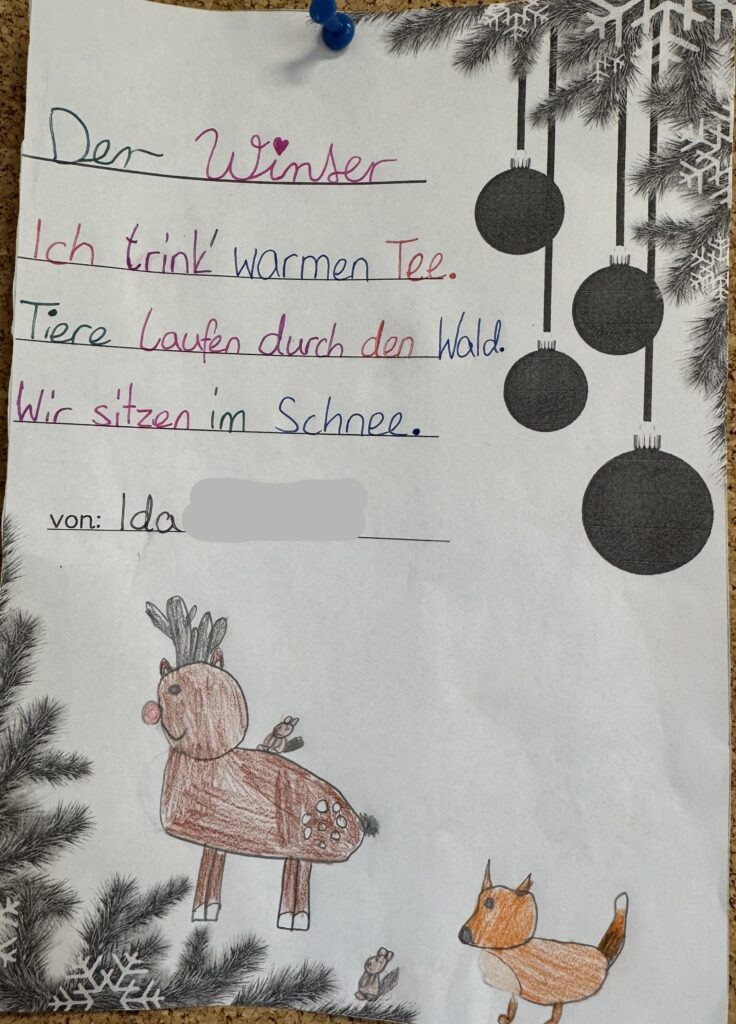 Der Winter
Ich trink' warmen Tee.
Tiere laufen durch den Wald.
Wir sitzen im Schnee.
von: Ida